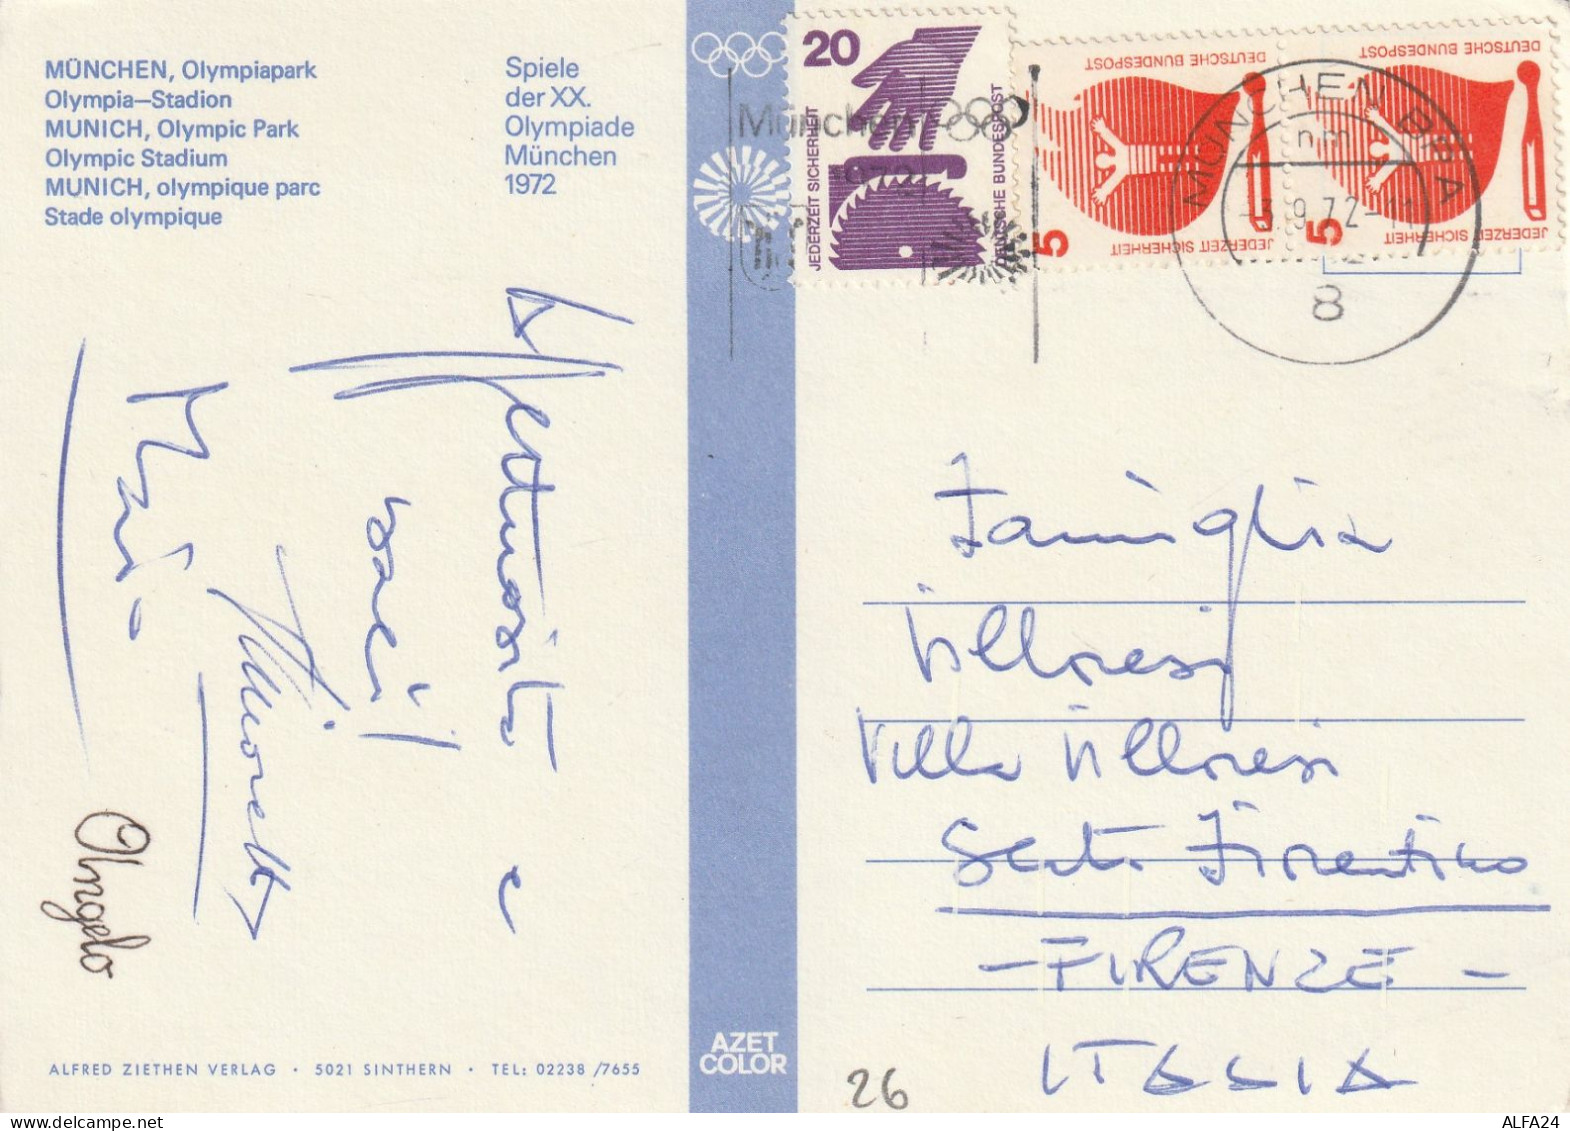 MÜNCHEN, Olympiapark
Olympia—Stadion
MUNICH, Olympic Park
Olympic Stadium
MUNICH, olympique parc
Stade olympique
Spiele
der XX.
Olympiade
München
1972
20
JEDERZEIT SICHERHEIT
DEUTSCHE BUNDESPOST
München
1972
DEUTSCHE BUNDESPOST
5
JEDERZEIT SICHERHEIT
DEUTSCHE BUNDESPOST
5
JEDERZEIT SICHERHEIT
MÜNCHEN BPA
nm
-3.9.72-11
8
Affettuosità e
baci!
Mario
Angelo
Famiglia
Villoresi
Villa Villoresi
Sesto Fiorentino
- FIRENZE -
ITALIA
ALFRED ZIETHEN VERLAG • 5021 SINTHERN • TEL: 02238 /7655
AZET
COLOR
26
ALFA24